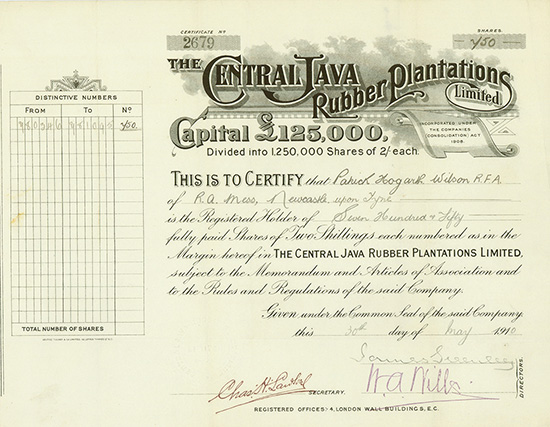 CERTIFICATE Nº
2679
SHARES.
750
THE CENTRAL JAVA
Rubber Plantations
Limited
Capital £125,000,
INCORPORATED UNDER
THE COMPANIES
(CONSOLIDATION) ACT
1908.
Divided into 1,250,000 Shares of 2/- each.
DISTINCTIVE NUMBERS
FROM TO Nº
750.
TOTAL NUMBER OF SHARES
THIS IS TO CERTIFY that Patrick Hogarth Wilson R.F.A.
of R.A. Mess, Newcastle upon Tyne
is the Registered Holder of Seven Hundred & Fifty
fully paid Shares of Two Shillings each numbered as in the
Margin hereof in THE CENTRAL JAVA RUBBER PLANTATIONS LIMITED,
subject to the Memorandum and Articles of Association and
to the Rules and Regulations of the said Company.
Given under the Common Seal of the said Company,
this 30th day of May 1910
DIRECTORS.
SECRETARY.
REGISTERED OFFICES:- 4, LONDON WALL BUILDINGS, E.C.